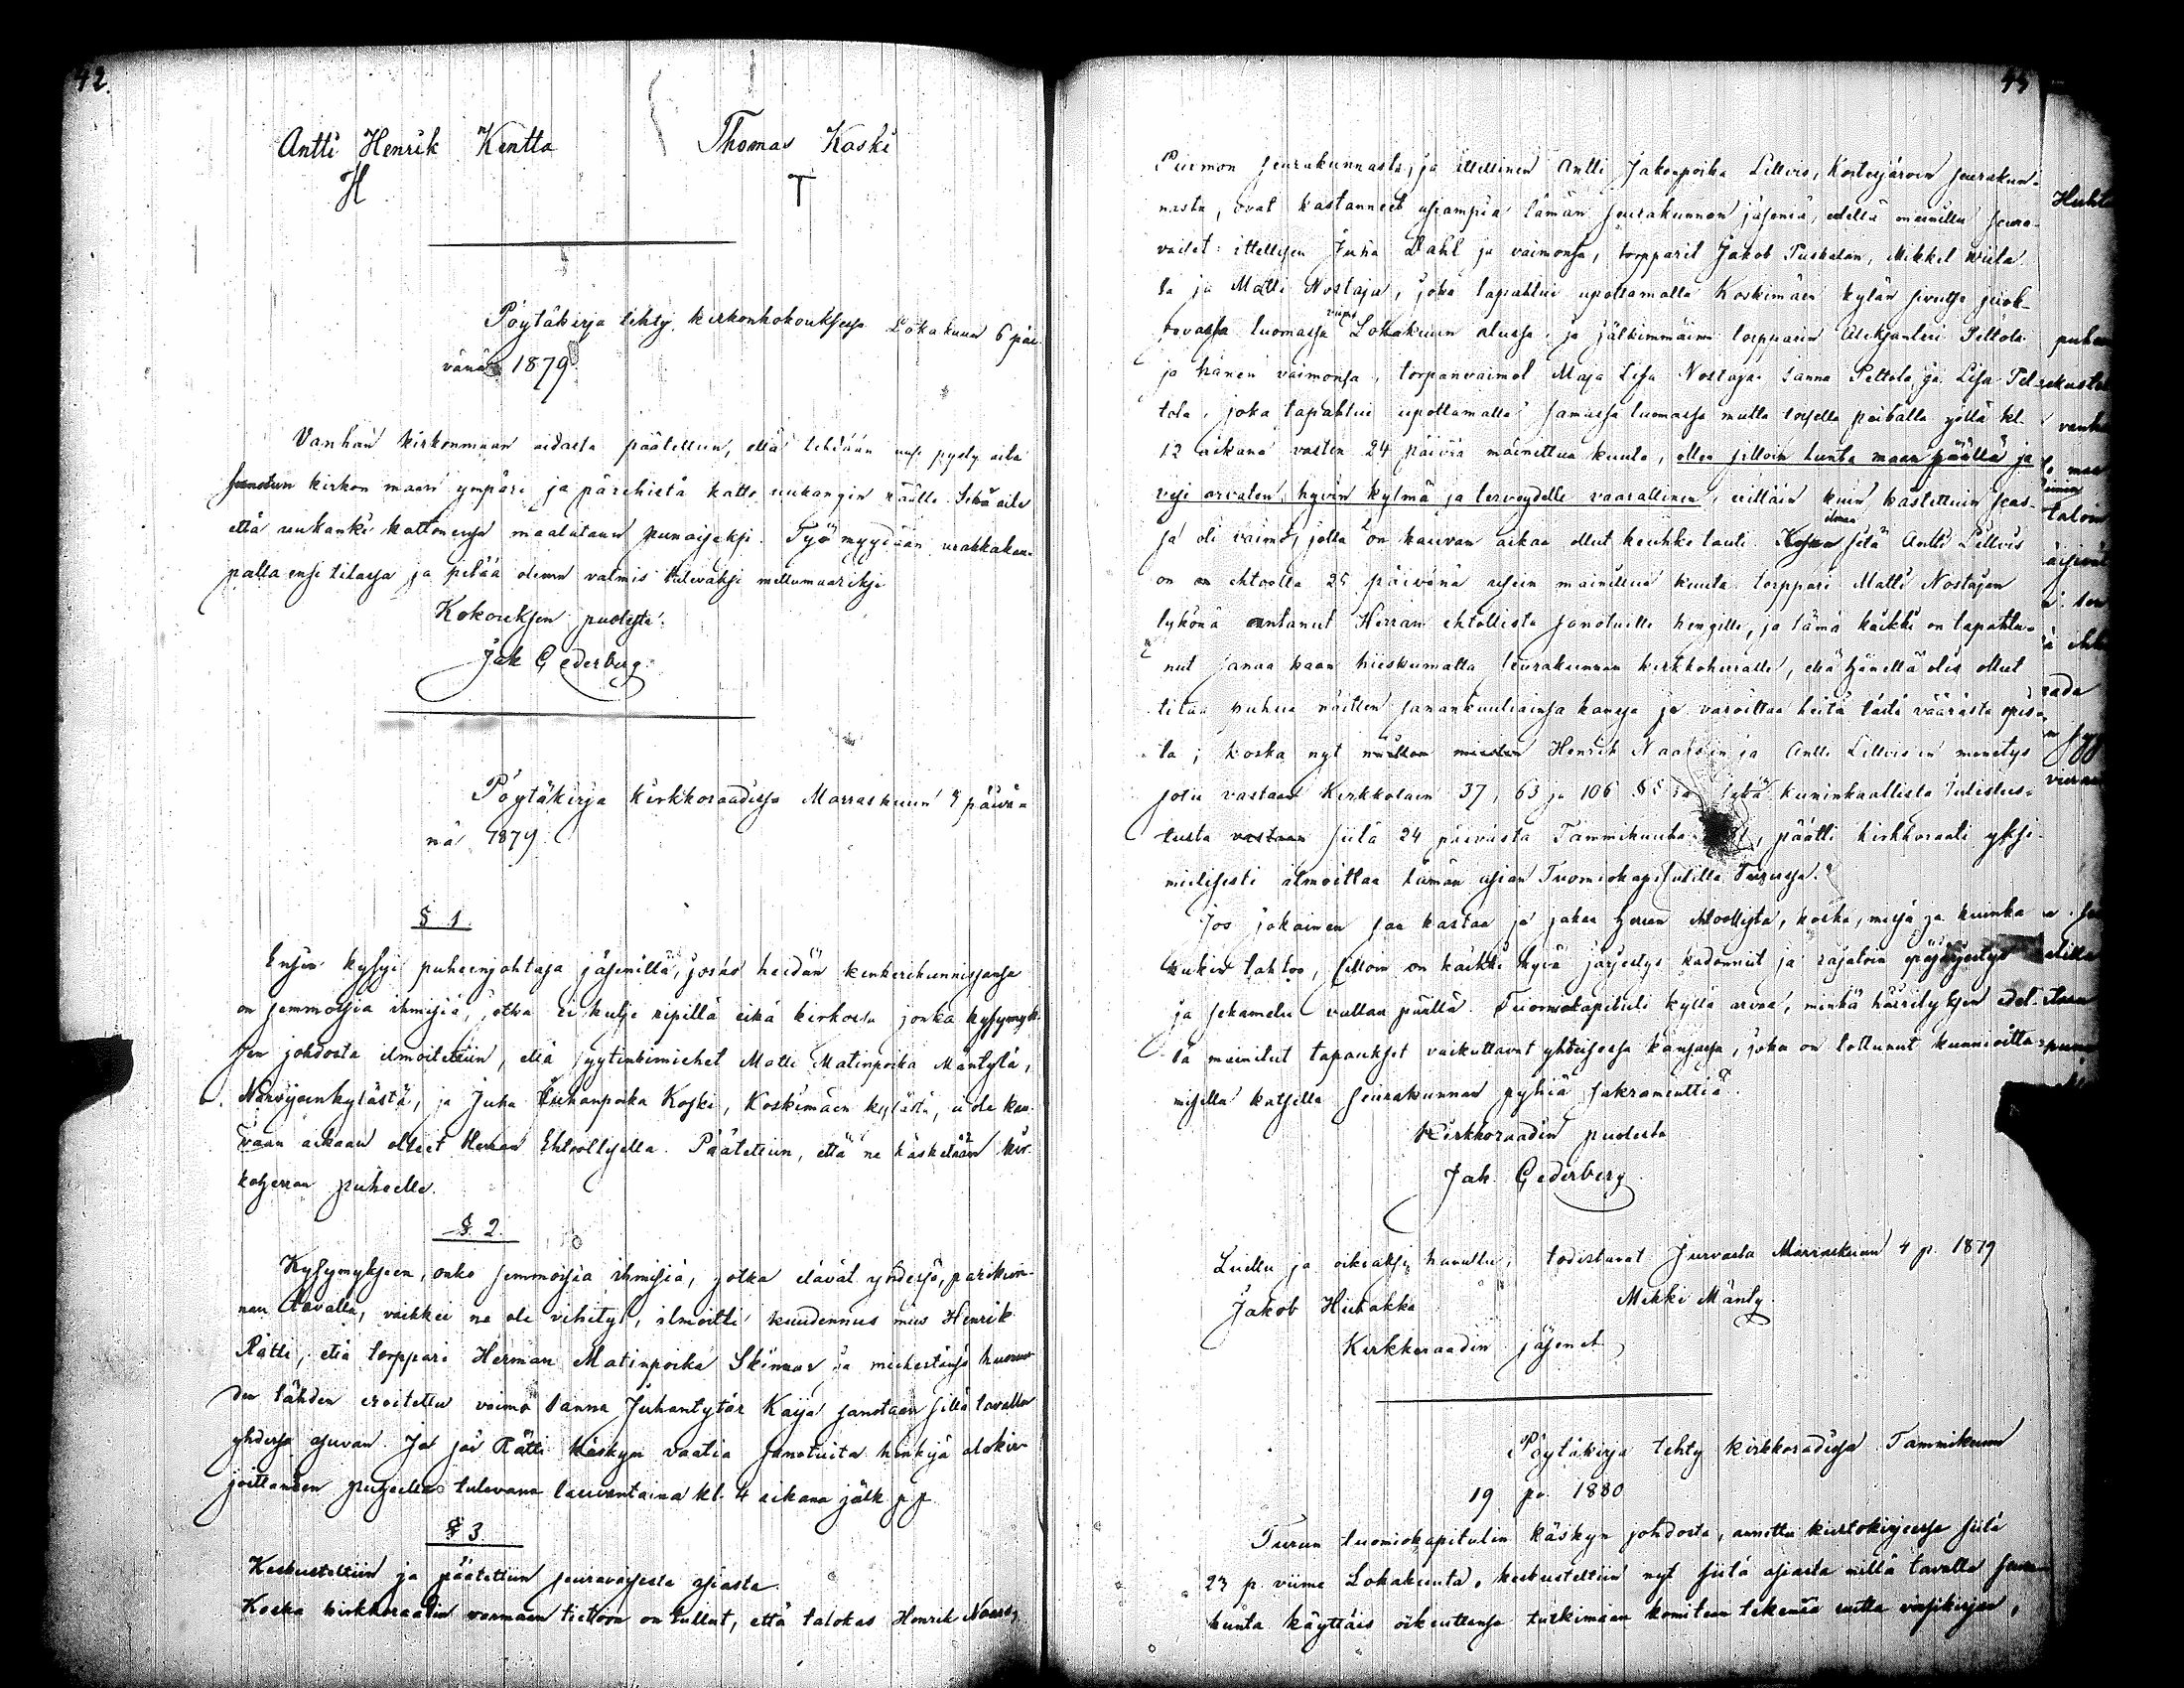 42.
Antti Henrik Kentta Thomas Kaski
H T
Pöytäkirja tehty kirkonkokouksessa Lokakuun 6 päi-
vänä 1879
Vanhan kirkonmaan aidasta päätettiin, että tehdään uusi pysty aita
sanotun kirkon maan ympäri ja pärehistä katto uukangin päälle. Sekä aita
että uukanki kattonensa maalataan punaiseksi. Työ myydään urakkakau-
palla ensi tilassa ja pitää oleman valmis tulevaksi mettumaariksi
Kokouksen puolesta:
Jak Cederberg
Pöytäkirja kirkkoraadissa Marraskuun 4 päivä-
nä 1879.
§ 1.
Ensin kysyi puheenjohtaja jäseniltä, josko heidän kinkerikunnissansa
on semmosia ihmisiä, jotka ei kulje ripillä eikä kirkossa jonka kysymyk-
sen johdosta ilmoitettiin, että syytinkimiehet Matti Matinpoika Mäntylä,
Närvijoenkylästä, ja Juha Juhanpoika Koski, Koskimäen kylästä, ei ole kau-
vaan aikaan olleet Herran Ehtoollisella. Päätettiin, että ne käsketään kir-
koherran puheelle.
§ 2.
Kysymykseen, onko semmoisia ihmisiä, jotka elävät yhdessä, pariskun-
nan tavalla, vaikkei ne ole vihityt, ilmoitti kuudennus mies Henrik
Rätti, että torppari Herman Matinpoika Skinnar ja miehestänsä huoruu-
den tähden eroitettu vaimo Sanna Juhantytär Kaija sanotaan sillä tavalla
yhdessä asuvan. Ja sai Rätti käskyn vaatia sanotuita henkijä allekir-
joittaneen puheella tulevana lauvantaina kl. 4 aikana jälk pp.
§ 3.
Keskusteltiin ja päätettiin seuraavasta asiasta.
Koska kirkkoraadin varmaan tietoon on tullut, että talokas Henrik Naarsj
Purmon seurakunnasta, ja itellinen Antti Jakonpoika Lillvis, Kortesjärven seurakun-
nasta, ovat kastanneet useampia tämän seurakunnan jäseniä, edellä mainittu seura-
vaiset: itellisen Juha Dahl ja vaimonsa, torpparit Jakob Puskalan, Mikkel Wiita-
la ja Matti Nostaja, joka tapahtui upottamalla Koskimäen kylän sivutse juok-
sevassa luomassa viime Lokakuun alussa, ja jälkimmäinen torpparin Aleksanteri Peltola
ja hänen vaimonsa, torpanvaimot Maja Lisa Nostaja Sanna Peltola ja Lisa Pel-
tola, joka tapahtui upottamalla samassa luomassa mutta toisella paikalla yöllä kl.
12 aikana vasten 24 päivää mainittua kuuta, ollen silloin lunta maan päällä ja
vesi arvaten hyvin kylmä ja terveydelle vaarallinen, erittäin kuin kastettuin seas-
sa oli vaimo, jolla on kauvan aikaa ollut keuhko tauti. Koska sitä Antti Lillvis
on ehtoolla 25 päivänä usein mainittua kuuta torppari Matti Nostajan
tykönä antanut Herran ehtollista sanotuille hengille, ja tämä kaikki on tapahtu-
nut sanaakaan hiiskumatta seurakunnan kirkkoherralle, että hänellä olis ollut
tilaa puhua näitten sanankuuliainsa kanssa ja varoittaa heitä tästä väärästä opis-
ta; koska nyt Henrik Naarsin ja Antti Lillvis'in menetys
sotii vastaan Kirkkolain 37, 63 ja 106 §§ ja sekä kuninkaallista Julistus-
tusta vastaan siitä 24 päivästä Tammikuuta, päätti kirkkoraati yksi-
mielisesti ilmoittaa tämän asian Tuomiokapitulille Turussa.
Jos jokainen saa kastaa ja jakaa Herran ehtoollista, koska, missä ja kuinka
kukin tahtoo, silloin on kaikki hyvä järjestys kadonnut ja rajaton epäjärjestys
ja sekamelu vallan päällä. Tuomiokapituli kyllä arvaa, minkä häirityksen edel-
lä mainitut tapaukset vaikuttavat yhteisessä kansassa, joka on tottunut kunnioitta-
misella katsella seurakunnan pyhiä sakramenttia.
Kirkkoraadin puolesta
Jak. Cederberg
Luettu ja oikiaksi havattu, todistavat Jurvasta Marraskuun 4 p. 1879
Jakob Hietakka Mikki Mänty.
Kirkkoraadin jäsenet
Pöytäkirja tehty kirkkoradissa Tammikuun
19 p. 1880
Turun tuomiokapitulin käskyn johdosta, annettu kiertokirjeessa siitä
23 p. viime Lokakuuta, keskusteltiin nyt siitä asiasta millä tavalla seura-
kunta käyttäis oikeuttansa tutkimaan komitean tekemää uutta virsikirjaa,